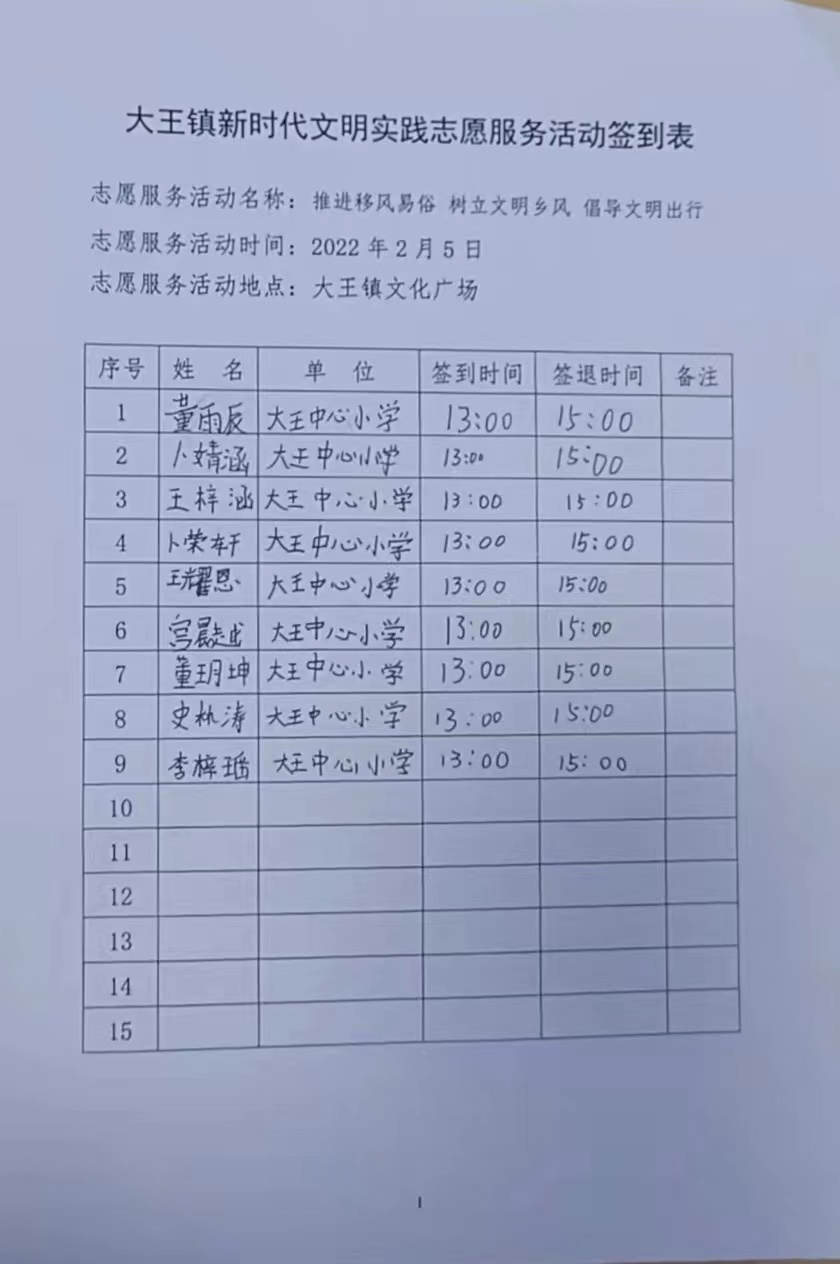 大王镇新时代文明实践志愿服务活动签到表
志愿服务活动名称：推进移风易俗 树立文明乡风 倡导文明出行
志愿服务活动时间：2022年2月5日
志愿服务活动地点：大王镇文化广场
序号 姓 名 单 位 签到时间 签退时间 备注
1 董雨辰 大王中心小学 13:00 15:00
2 卜婧涵 大王中心小学 13:00 15:00
3 王梓涵 大王中心小学 13:00 15:00
4 卜荣轩 大王中心小学 13:00 15:00
5 王耀恩 大王中心小学 13:00 15:00
6 大王中心小学 13:00 15:00
7 董玥坤 大王中心小学 13:00 15:00
8 大王中心小学 13:00 15:00
9 李梓瑶 大王中心小学 13:00 15:00
10
11
12
13
14
15
1